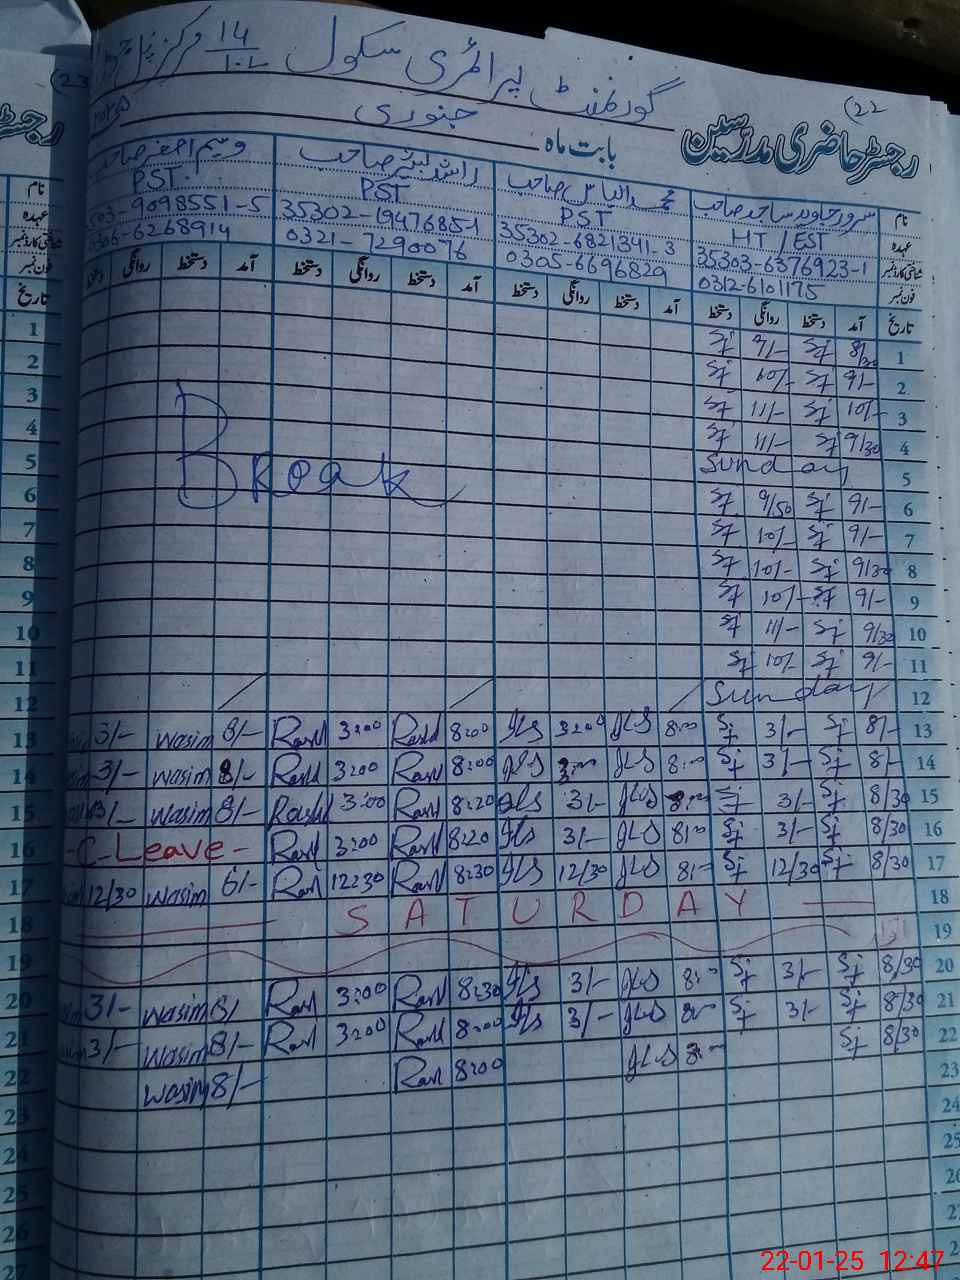 گورنمنٹ پرائمری سکول 14 مرکز
(22
رجسٹر حاضری مدرسین
بابت ماہ جنوری
نام سرور جاوید ساجد صاحب محمد الیاس صاحب راشد صاحب وسیم اصغر صاحب
عہدہ HT / EST PST PST PST
شناختی کارڈ نمبر 35303-6376923-1 35302-6821341-3 35302-1947685-1 503-9098551-5
فون نمبر 0312-6101175 0305-6696829 0321-7290076 0306-6268914
تاریخ آمد دستخط روانگی دستخط آمد دستخط روانگی دستخط آمد دستخط روانگی دستخط آمد دستخط روانگی دستخط
1 8/30 Sj 9/- Sj
2 9/- Sj 10/- Sj
3 10/- Sj 11/- Sj
4 9/30 Sj 11/- Sj
5 Sunday
Break
6 9/- Sj 9/50 Sj
7 9/- Sj 10/- Sj
8 9/30 Sj 10/- Sj
9 9/- Sj 10/- Sj
10 9/30 Sj 11/- Sj
11 9/- Sj 10/- Sj
12 Sunday
13 8/- Sj 3/- Sj 8:00 JLS 3:00 JLS 8:00 Rashd 3:00 Rashd 8/- wasim 3/-
14 8/- Sj 3/- Sj 8:00 JLS 3:00 JLS 8:00 Rashd 3:00 Rashd 8/- wasim 3/-
15 8/30 Sj 3/- Sj 8:00 JLS 3/- JLS 8:20 Rashd 3:00 Rashd 8/- wasim 3/-
16 8/30 Sj 3/- Sj 8:00 JLS 3/- JLS 8:20 Rashd 3:00 Rashd -C-Leave-
17 8/30 Sj 12/30 Sj 8/- JLS 12/30 JLS 8:30 Rashd 12:30 Rashd 6/- wasim 12/30
18 SATURDAY
19
20 8/30 Sj 3/- Sj 8:00 JLS 3/- JLS 8:30 Rashd 3:00 Rashd 8/- wasim 3/-
21 8/30 Sj 3/- Sj 8:00 JLS 3/- JLS 8:00 Rashd 3:00 Rashd 8/- wasim 3/-
22 8/30 Sj 8:00 JLS 8:00 Rashd 8/- wasim
23
24
25
26
22-01-25 12:47